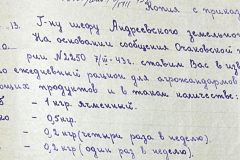 Копия с приказ
13. Г-ну шефу Андреевского земельног
На основании сообщения Осаковской п
рии №2250 7/VII-43г. ставим Вас в изв
ежедневный рацион для агрожандармов
ющих продуктов и в таком количестве:
б - 1 кгр. ячменный.
- 0,5 кгр.
- 0,2 кгр (четыре раза в неделю).
- 0,2 кгр (один раз в неделю).